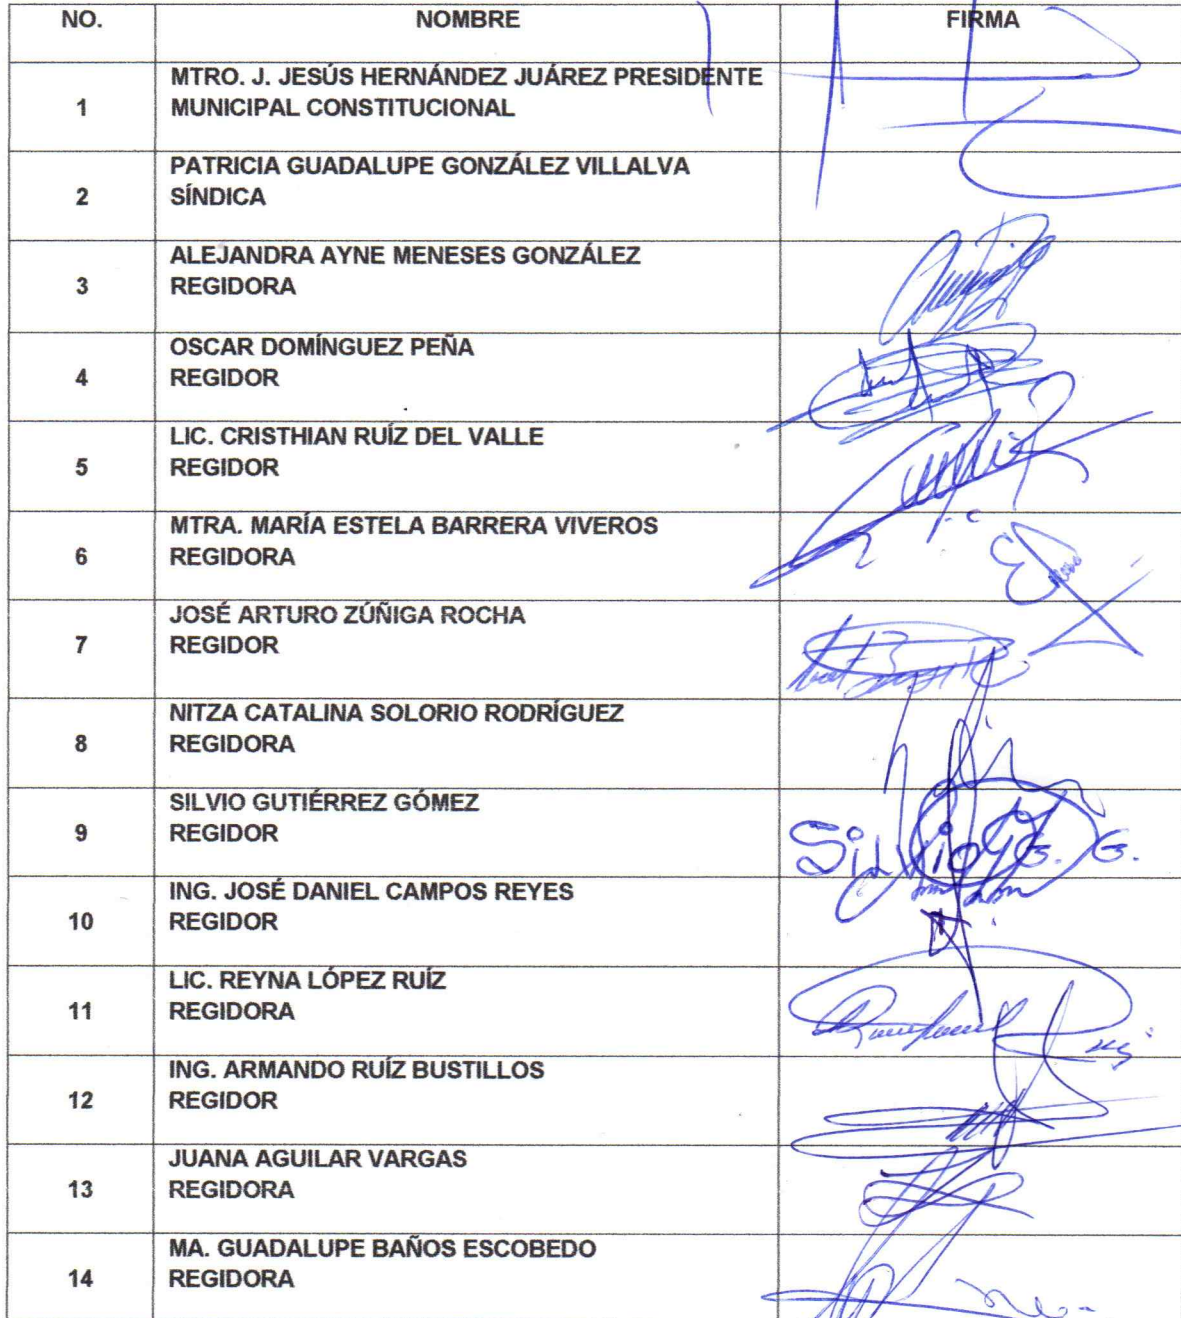 NO. NOMBRE FIRMA
MTRO. J. JESÚS HERNÁNDEZ JUÁREZ PRESIDENTE
1 MUNICIPAL CONSTITUCIONAL
PATRICIA GUADALUPE GONZÁLEZ VILLALVA
2 SÍNDICA
ALEJANDRA AYNE MENESES GONZÁLEZ
3 REGIDORA
OSCAR DOMÍNGUEZ PEÑA
4 REGIDOR
LIC. CRISTHIAN RUÍZ DEL VALLE
5 REGIDOR
MTRA. MARÍA ESTELA BARRERA VIVEROS
6 REGIDORA
JOSÉ ARTURO ZÚÑIGA ROCHA
7 REGIDOR
NITZA CATALINA SOLORIO RODRÍGUEZ
8 REGIDORA
SILVIO GUTIÉRREZ GÓMEZ
9 REGIDOR Silvio G. G.
ING. JOSÉ DANIEL CAMPOS REYES
10 REGIDOR
LIC. REYNA LÓPEZ RUÍZ
11 REGIDORA
ING. ARMANDO RUÍZ BUSTILLOS
12 REGIDOR
JUANA AGUILAR VARGAS
13 REGIDORA
MA. GUADALUPE BAÑOS ESCOBEDO
14 REGIDORA